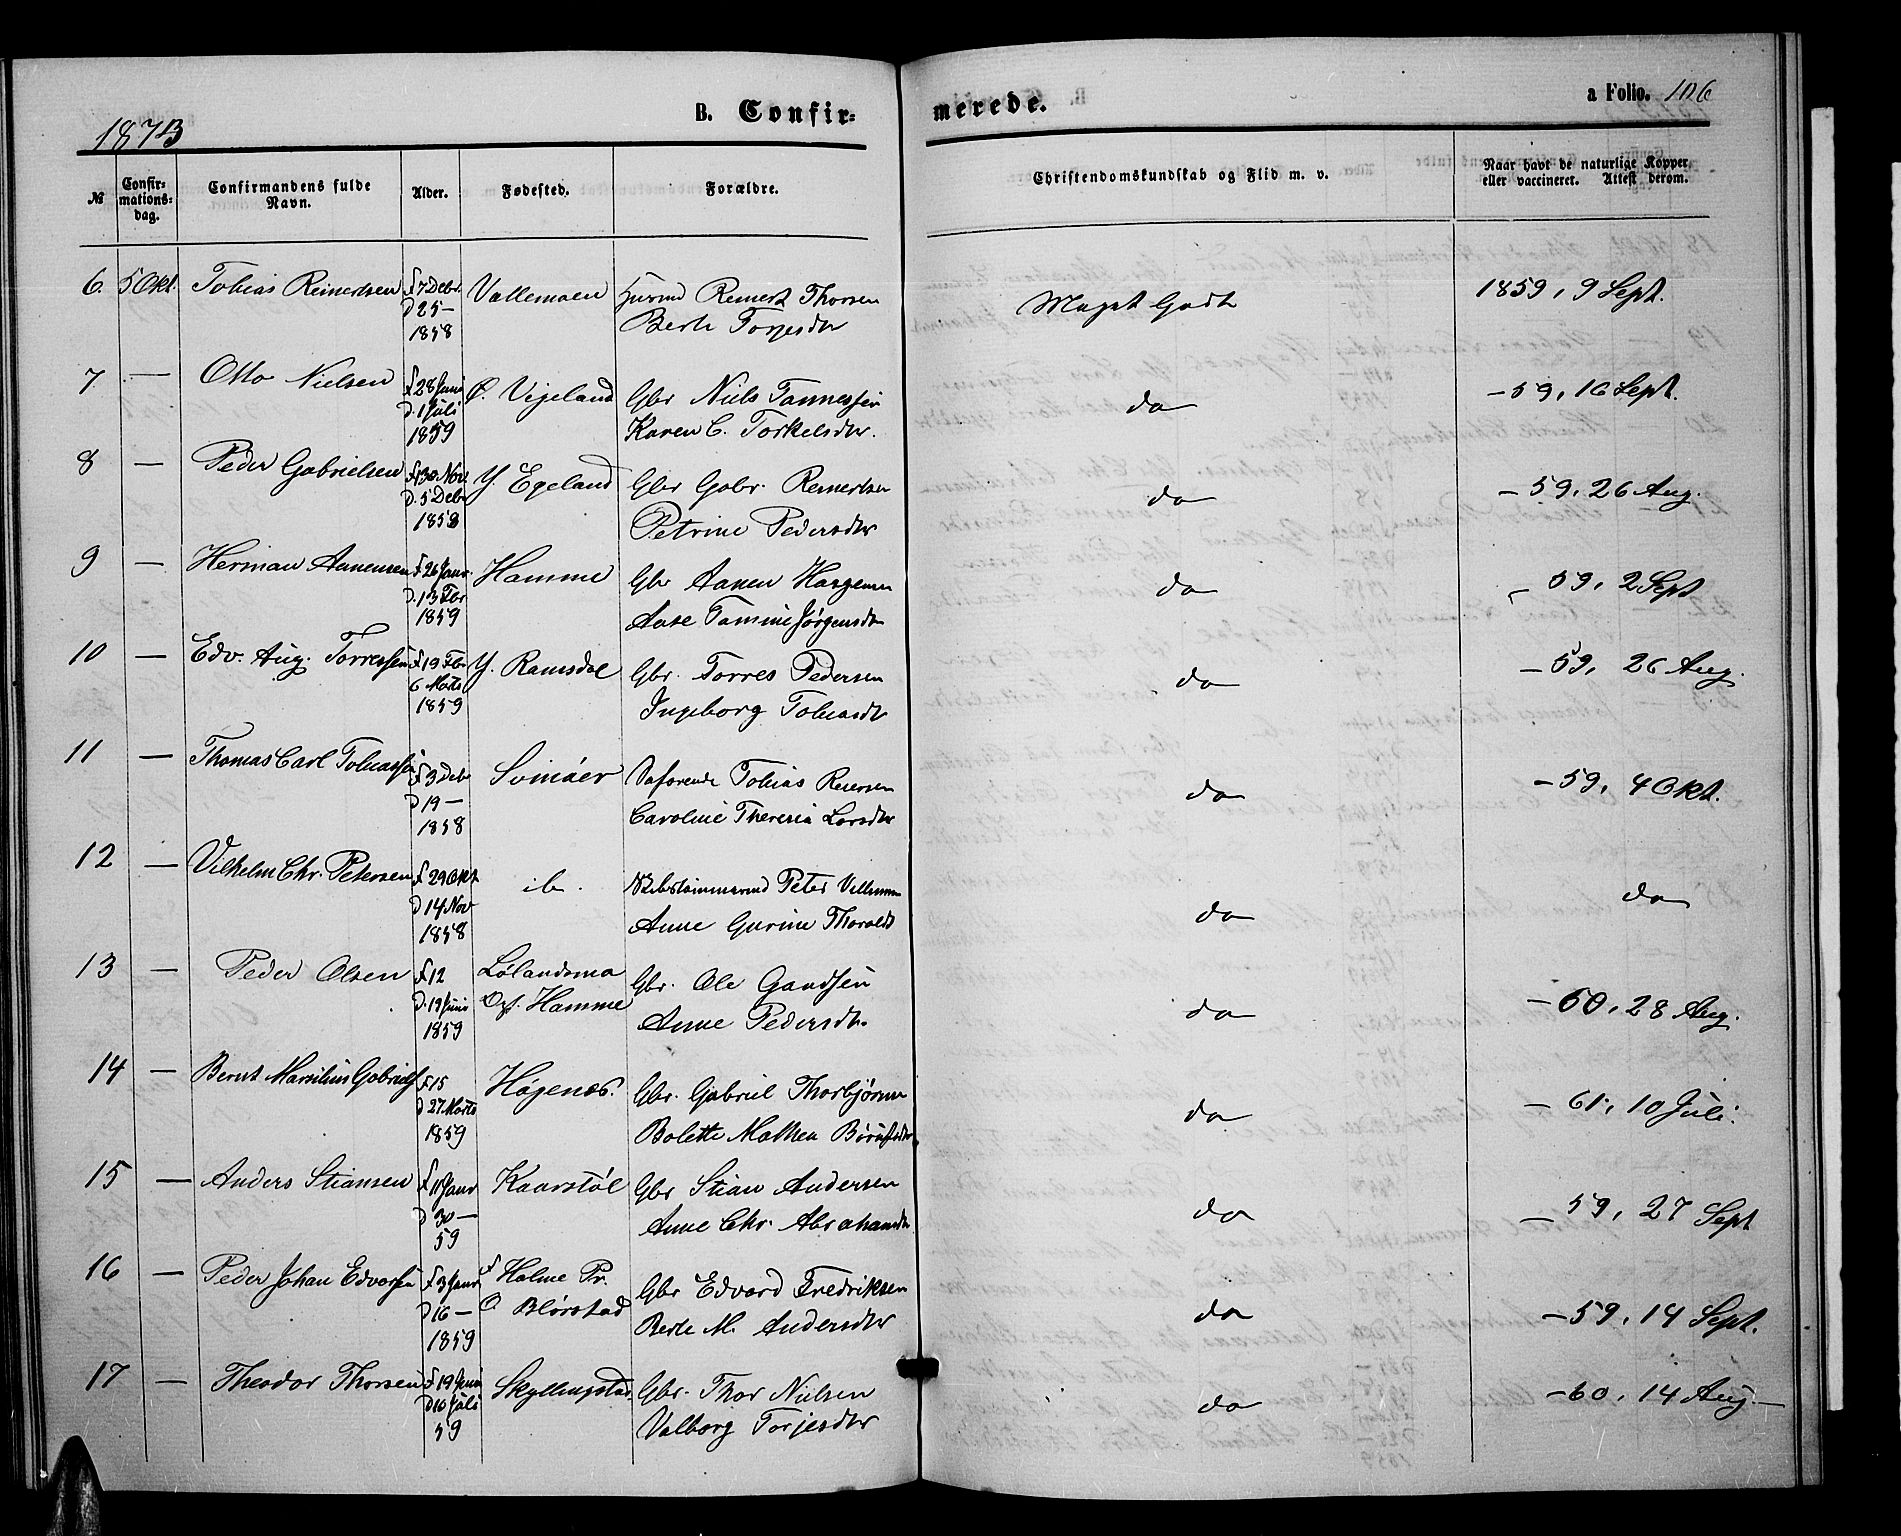 B. Confir=
merede.
a Folio. 106
1873
№
Confir=
mations=
dag.
Confirmandens fulde
Navn.
Alder.
Fødested.
Forældre.
Christendomskundskab og Flid m. v.
Naar havt de naturlige Kopper
eller vaccineret. Attest derom.
6. 5 Okt. Tobias Reinertsen f 7 Debr. Vallemoen Husmd Reinert Thorsen Meget Godt 1859, 9 Sept.
D 25 — Berte Torjesdtr
1858
7 — Otto Nielsen f 28 Juni Ø. Vigeland Gbr Niels Tannessen do — 59, 16 Sept.
D. 1 Juli Karen C. Torkelsdtr.
1859
8 — Peder Gabrielsen f 30 Nov. Y. Egeland Gbr Gabr. Reinertsen do — 59, 26 Aug.
D. 5 Debr Petrine Pedersdtr
1858
9 — Herman Aanensen f 26 Janr. Hamme Gbr Aanen do — 59, 2 Sept
D. 13 Fbr Aase Tomine Jørgensdtr
1859
10 — Edv. Aug. Torressen f 19 Fbr Y. Ramsdal Gbr. Torres Pedersen do — 59, 26 Aug.
6 Marts Ingeborg Tobiasdtr
1859
11 — Thomas Carl Tobiassen f 3 Debr Svinöer Søfarende Tobias Reiersen do — 59, 4 Okt.
D 19 — Caroline Theresia Larsdtr
1858
12 — Vilhelm Chr. Petersen f 29 Okt ib. Peter do do
D 14 Nov Anne Gurine Thoralds
1858
13 — Peder Olsen f 12 Lølandsmo Gbr. Ole Gundsen do — 60, 28 Aug.
D. 19 Juni Opf. Hamme Anne Pedersdtr.
1859
14 — Bernt Marselius Gabriels f 15 Høgenes. Gbr. Gabriel Thorbjørnsen do — 61, 10 Juli.
D 27 Marts Bolette Mathea
1859
15 — Anders Stiansen f 11 Janr Kaarstøl Gbr Stian Andersen do — 59, 27 Sept
D 30 — Anne Chr. Abrahamsdtr
59
16 — Peder Johan Edvarsen f 3 Janr f Holme Pr. Gbr Edvard Fredriksen do — 59, 14 Sept.
D 16 — O Blørstad Berte M. Andersdtr
1859
17 — Theodor Thorsen f 19 Juni Skyllingstad Gbr. Thor Nielsen do — 60, 14 Aug. —
D 10 Juli Valborg Torjesdtr
59